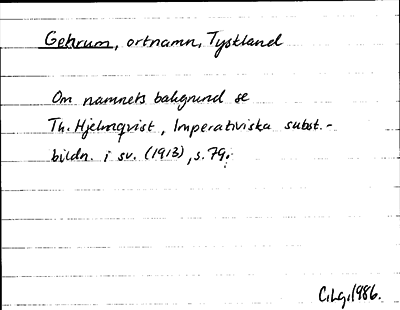 Gehrum, ortnamn, Tyskland
Om namnets bakgrund se
Th. Hjelmqvist, Imperativiska subst.-
bildn. i sv. (1913), s. 79.
C.Lg. 1986.